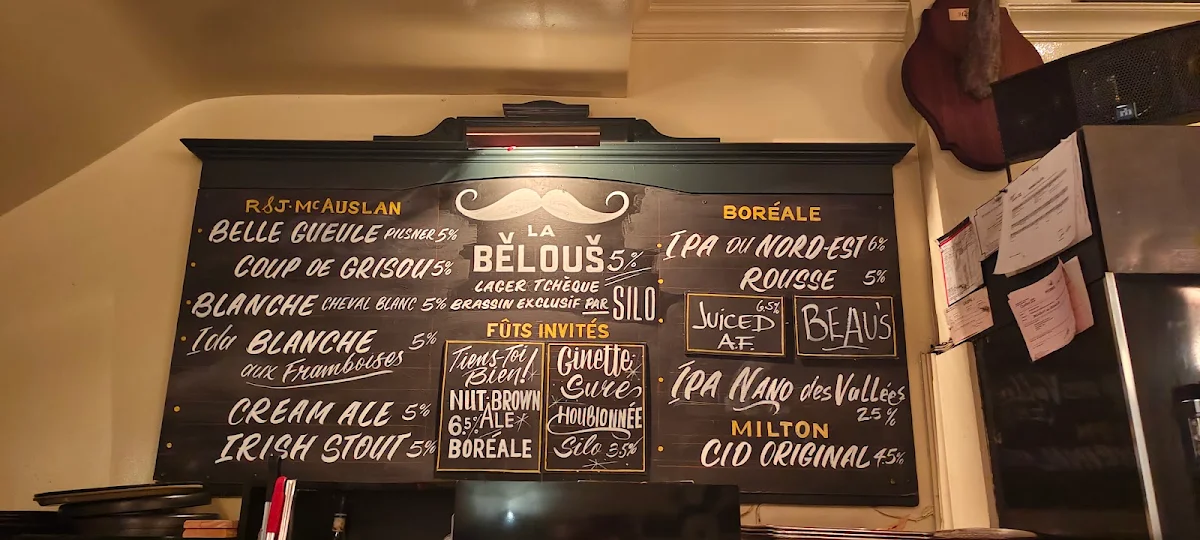 R&J·McAUSLAN
BELLE GUEULE PILSNER 5%
COUP DE GRISOU 5%
BLANCHE CHEVAL BLANC 5%
Ida BLANCHE 5%
aux Framboises
CREAM ALE 5%
IRISH STOUT 5%
LA
BĚLOUŠ 5%
LAGER TCHÈQUE
BRASSIN EXCLUSIF PAR SILO
FÛTS INVITÉS
Tiens-Toi
Bien!
NUT-BROWN
6.5% ALE
BORÉALE
Ginette
Sure
HOUBLONNÉE
Silo 3.5%
BORÉALE
IPA DU NORD-EST 6%
ROUSSE 5%
JUICED 6.5%
A.F.
BEAU'S
IPA NANO des Vallées
25%
MILTON
CID ORIGINAL 4.5%